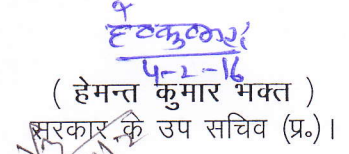 4-2-16
( हेमन्त कुमार भक्त )
सरकार के उप सचिव (प्र॰)।